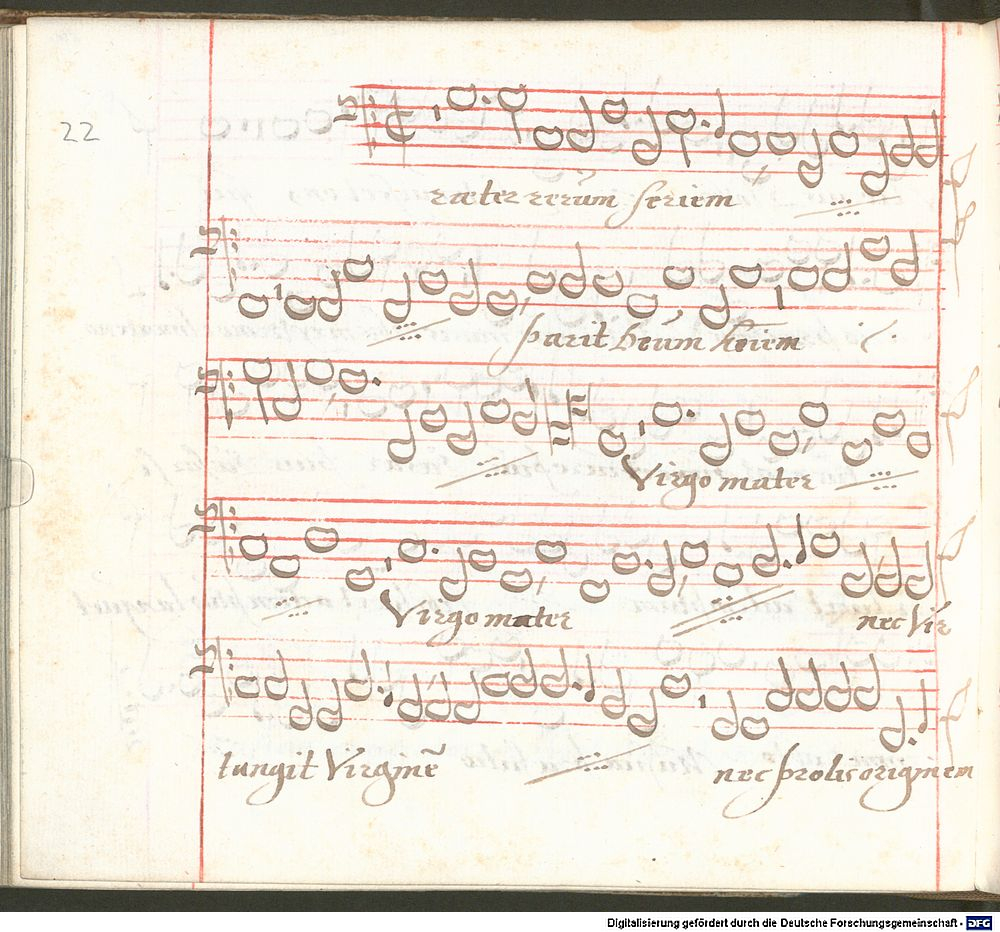 22
ræter rerum seriem
parit Deum heiem
Virgo mater
Virgo mater nec Vir
tangit Virginē nec prolis originem
Digitalisierung gefördert durch die Deutsche Forschungsgemeinschaft - DFG